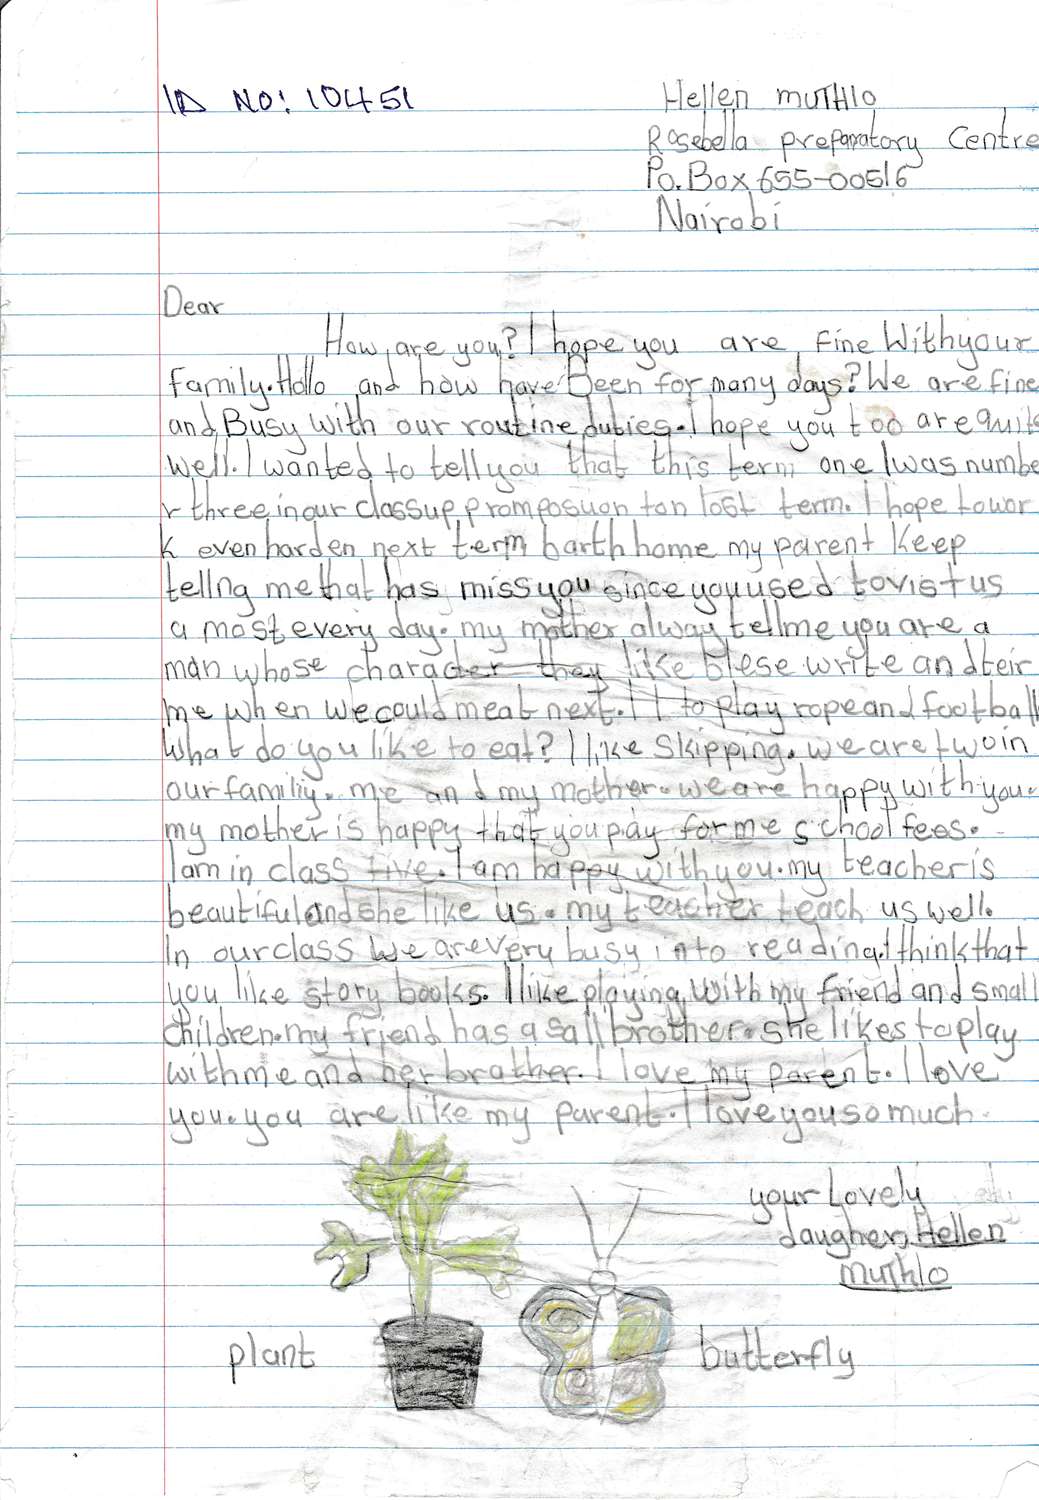 ID NO: 10451
Hellen muthio
Rosebella preparatory Centre
Po. Box 655-00516
Nairobi
Dear
How are you? I hope you are fine With your
family. Hallo and how have Been for many days? We are fine
and Busy with our routine duties. I hope you too are quite
well. I wanted to tell you that this term one I was numbe
r three in our class up from posuon ton last term. I hope to wor
k even harden next term barth home my parent keep
tellng me that has miss you since you used to vist us
a most every day. my mother alway tell me you are a
man whose character they like blese write and teir
me when we could meat next. I to play rope and football
What do you like to eat? I like skipping. we are two in
our familiy. me and my mother. we are happy with you.
my mother is happy that you pay for me school fees.
I am in class five. I am happy with you. my teacher is
beautiful and she like us. my teacher teach us well.
In our class we are very busy into reading. I think that
you like story books. I like playing with my friend and small
children. my friend has a sall brother. she likes to play
with me and her brather. I love my parent. I love
you. you are like my parent. I love you so much.
your Lovely
daugher, Hellen
muthio
plant
butterfly